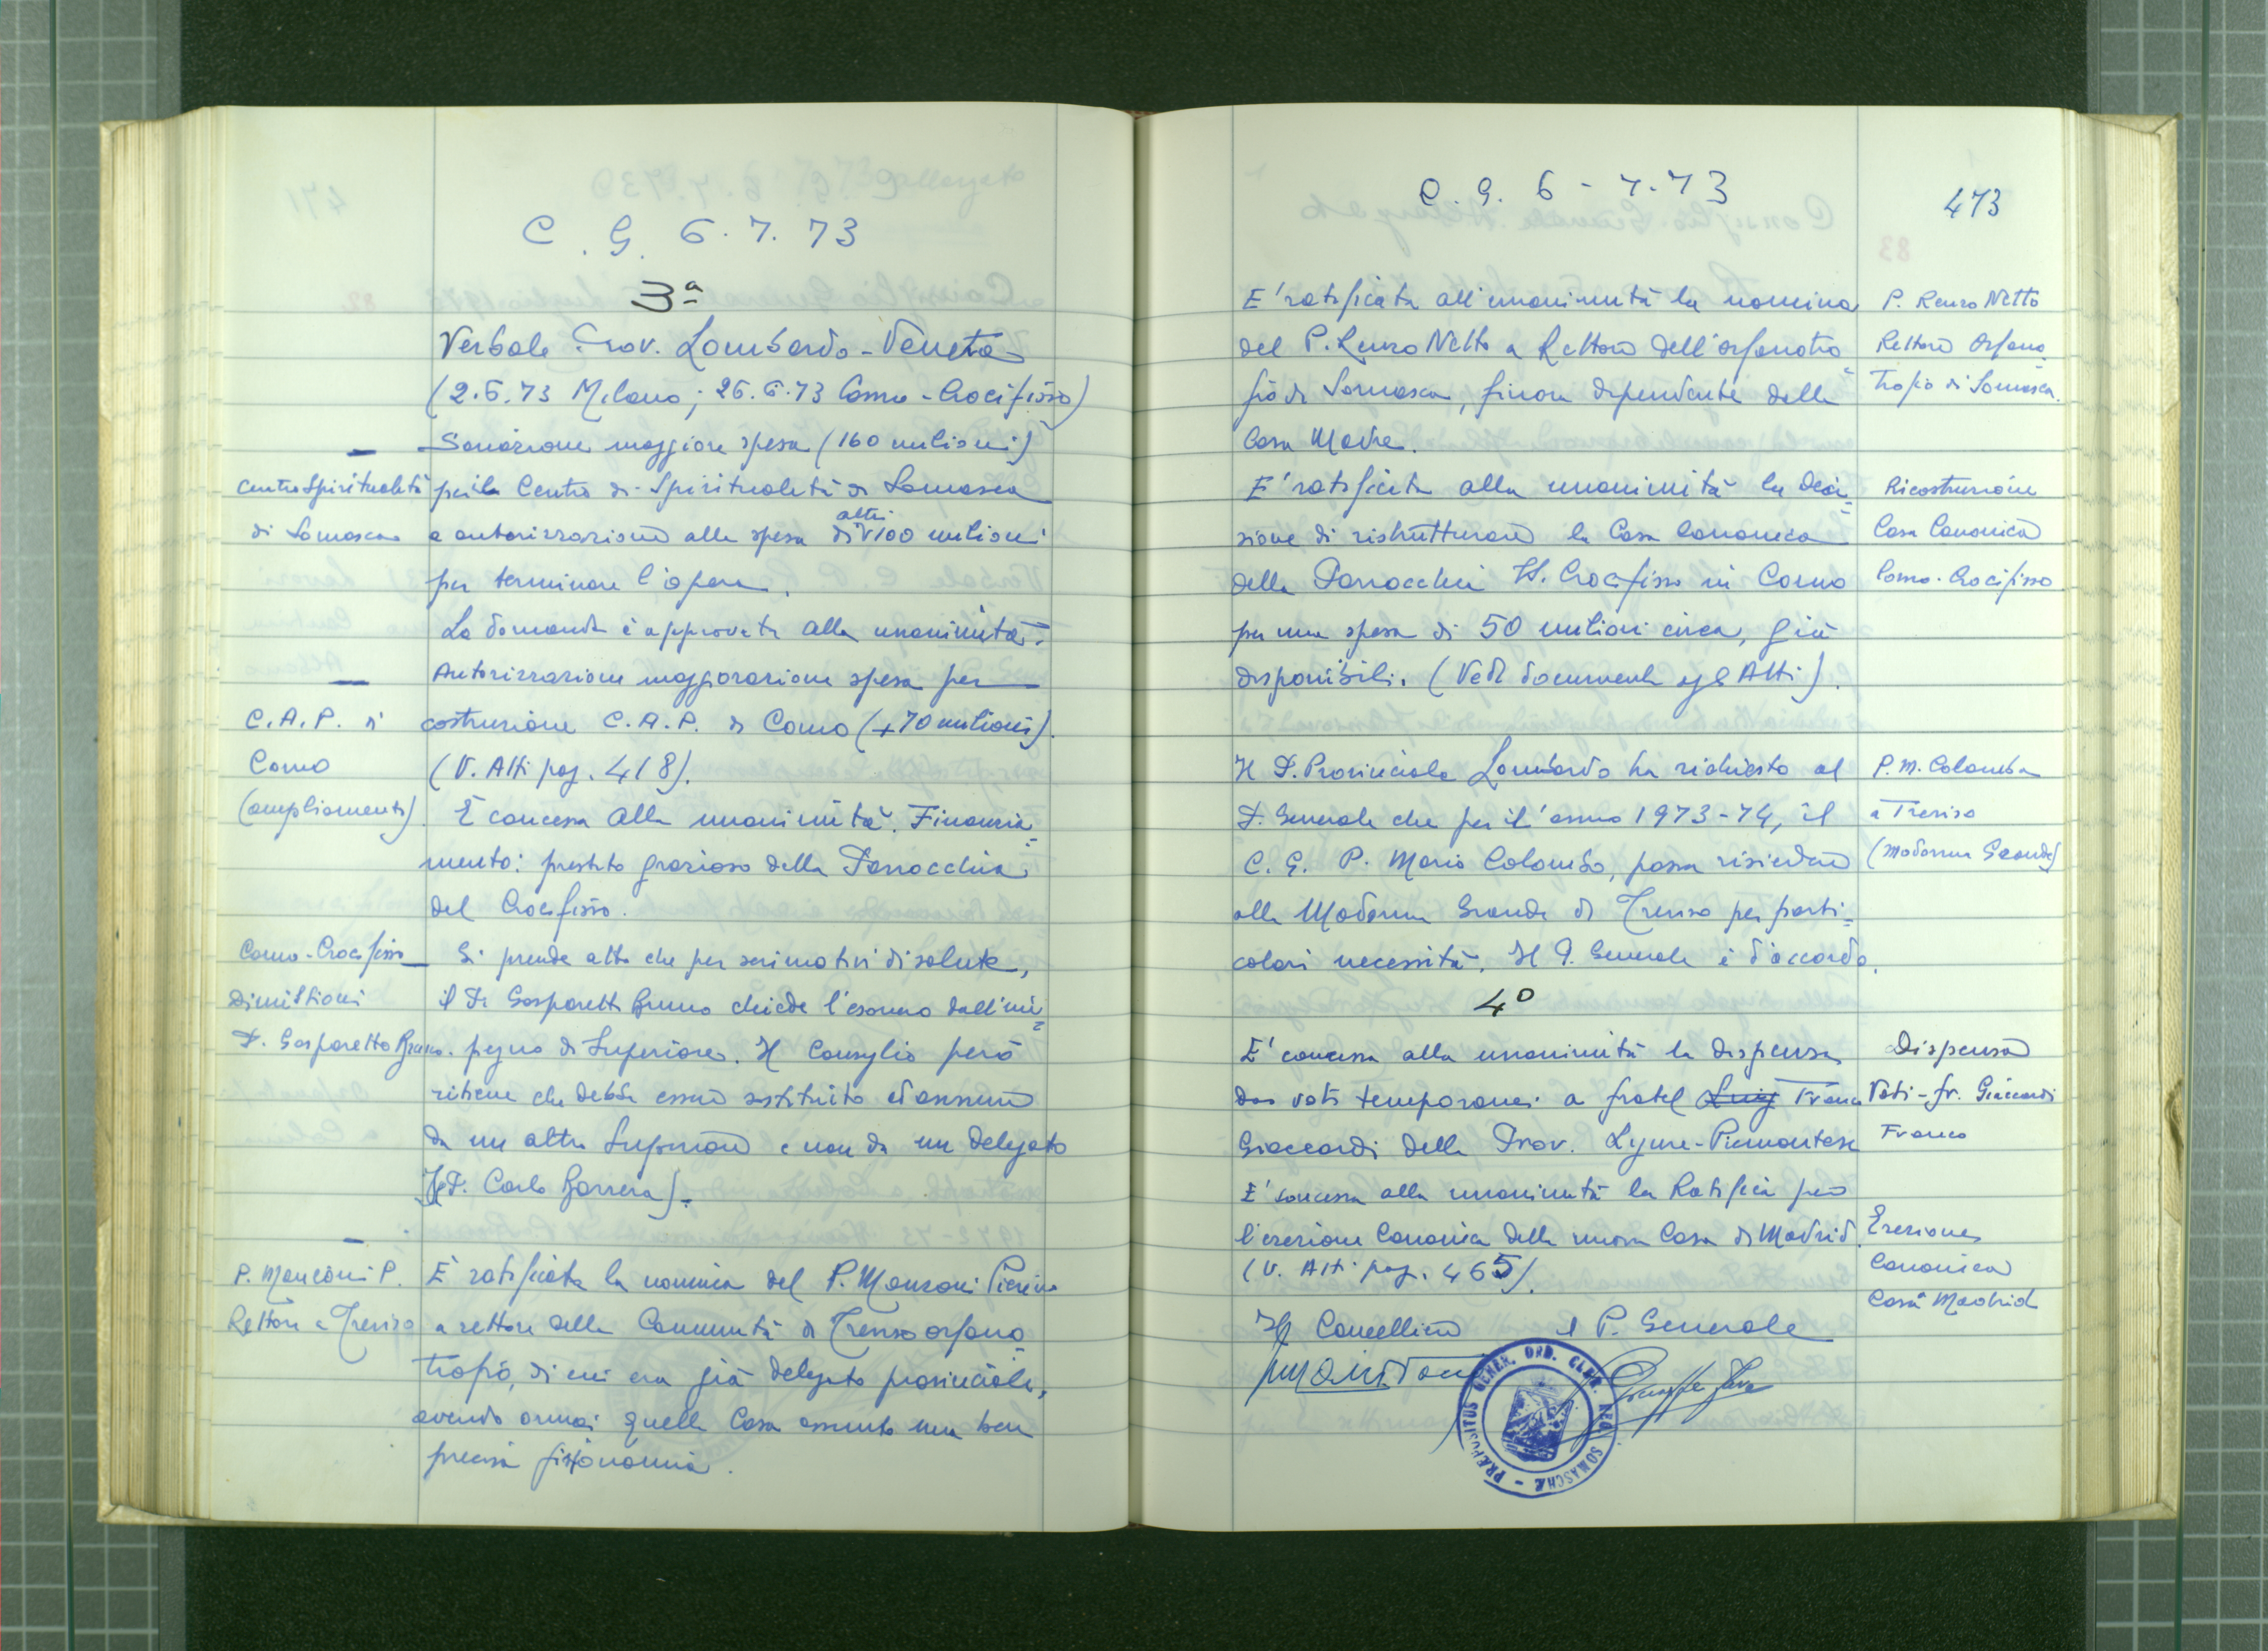 C. G. 6. 7. 73
3ª
Verbale Prov. Lombardo-Veneta
(2.6.73 Milano; 26.6.73 Como-Crocifisso)
Sanazione maggiore spesa (160 milioni)
Centro Spiritualità
di Somasca
per il Centro di Spiritualità di Somasca
e autorizzazione alla spesa di altri 100 milioni
per terminare l'opera.
La domanda è approvata alla unanimità.
Autorizzazione maggiorazione spesa per
C.A.P. di
Como
(ampliamento).
costruzione C.A.P. di Como (+70 milioni).
(V. Atti pag. 418).
È concessa alla unanimità. Finanzia=
mento: prestito grazioso della Parrocchia
del Crocifisso.
Como-Crocifisso
Dimissioni
P. Gasparetto Bruno.
Si prende atto che per seri motivi di salute,
il P. Gasparetto Bruno chiede l'esonero dall'im=
pegno di Superiore. Il Consiglio però
ritiene che debba essere sostituito ad annum
da un altro Superiore e non da un delegato
(P. Carlo Barrera).
P. Manzoni P.
Rettore a Treviso
È ratificata la nomina del P. Manzoni Pierino
a rettore della Comunità di Treviso orfano=
trofio, di cui era già delegato provinciale,
avendo ormai quella Casa assunto una ben
precisa fisionomia.
C. G. 6 - 7. 73
473
E' ratificata all'unanimità la nomina
del P. Renzo Netto a Rettore dell'orfanotro=
fio di Somasca, finora dipendente dalla
Casa Madre.
P. Renzo Netto
Rettore Orfano=
trofio di Somasca.
E' ratificata alla unanimità la deci=
sione di ristrutturare la Casa Canonica
della Parrocchia SS. Crocifisso in Como
per una spesa di 50 milioni circa, già
disponibili. (Vedi documenti agli Atti).
Ricostruzione
Casa Canonica
Como-Crocifisso
Il P. Provinciale Lombardo ha richiesto al
P. Generale che per il' anno 1973-74, il
C. G. P. Mario Colombo, possa risiedere
alla Madonna Grande di Treviso per parti=
colari necessità. Il P. Generale è d'accordo.
P. M. Colombo
a Treviso
(Madonna Grande)
4º
E' concessa alla unanimità la dispensa
dai voti temporanei a fratel Luigi Franco
Giaccardi della Prov. Ligure-Piemontese
Dispensa
Voti - fr. Giaccardi
Franco
E' concessa alla unanimità la Ratifica per
l'erezione Canonica della nuova Casa di Madrid.
(V. Atti pag. 465).
Erezione
Canonica
Casa Madrid
Il Cancelliere il P. Generale
PRÆPOSITUS GENER. ORD. CLER. REG. SOMASCHÆ -